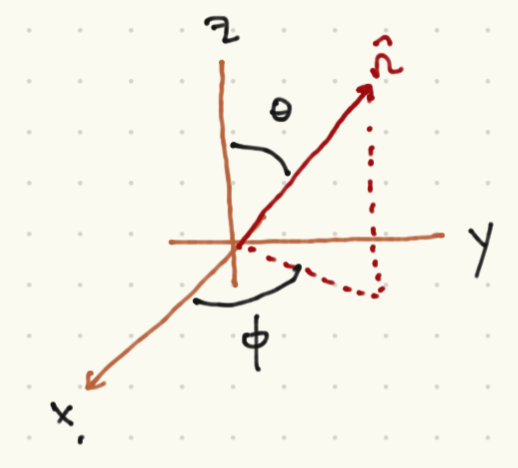 z
Ω̂
θ
y
φ
x